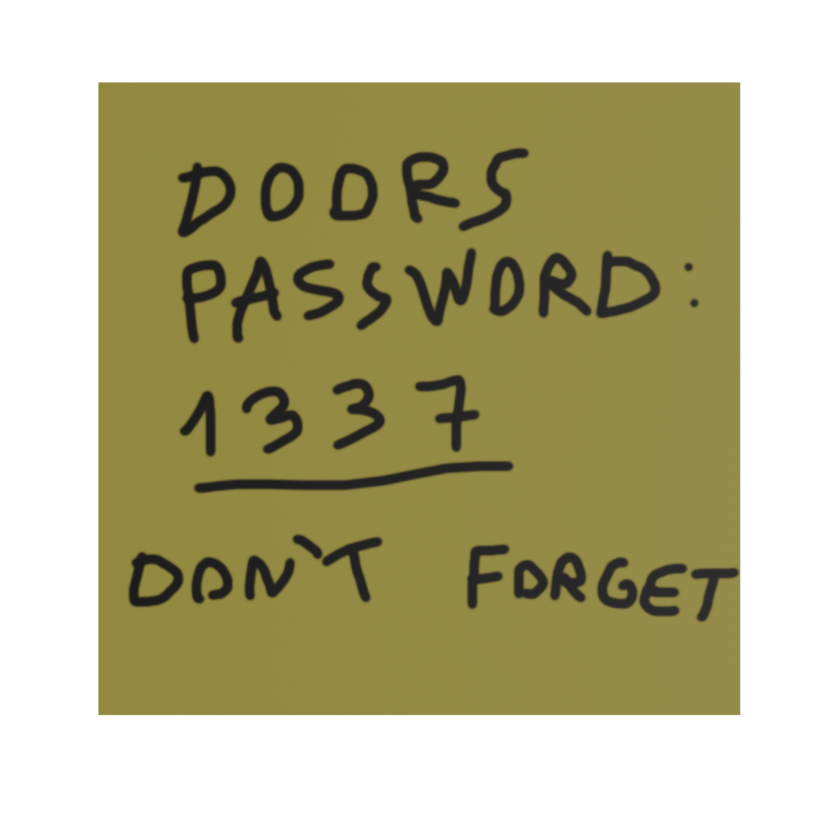 DOORS
PASSWORD:
1337
DON'T FORGET